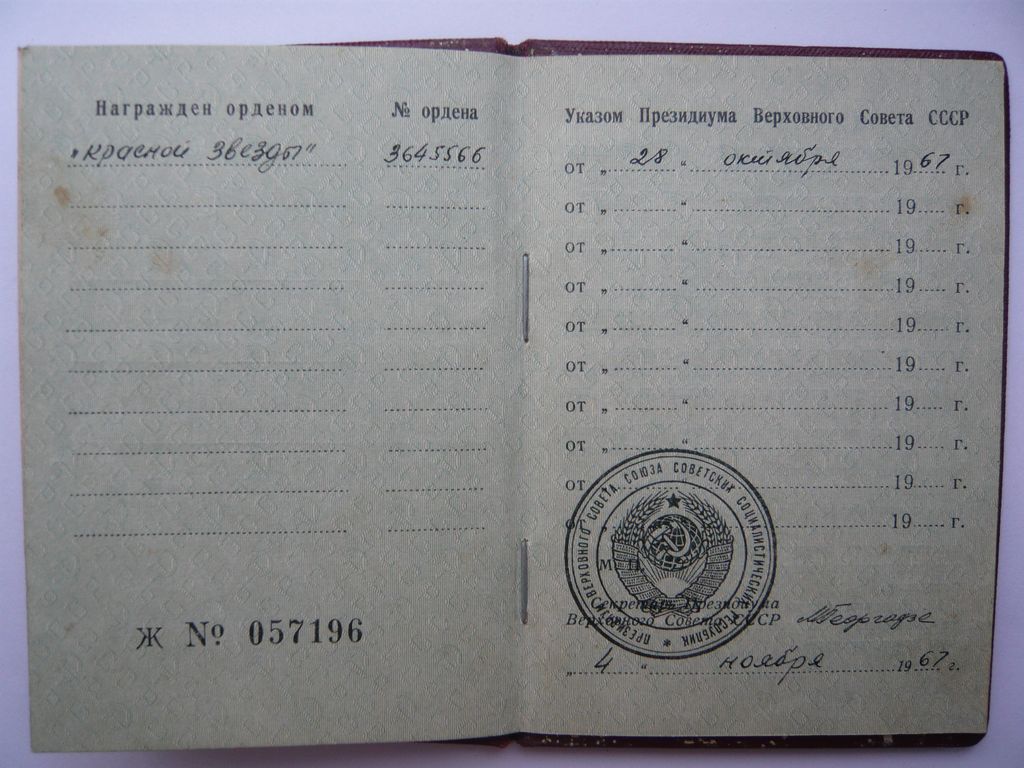 Награжден орденом № ордена
„Красной Звезды" 3645566
Ж № 057196
Указом Президиума Верховного Совета СССР
от „ 28 " октября 1967 г.
от „ " 19 г.
от „ " 19 г.
от „ " 19 г.
от „ " 19 г.
от „ " 19 г.
от „ " 19 г.
от „ " 19 г.
от „ 19 г.
от „ 19 г.
ПРЕЗИДИУМ ВЕРХОВНОГО СОВЕТА СОЮЗА СОВЕТСКИХ СОЦИАЛИСТИЧЕСКИХ РЕСПУБЛИК
М. П.
Секретарь Президиума
Верховного Совета СССР МГеоргадзе
„ 4 " ноября 1967 г.